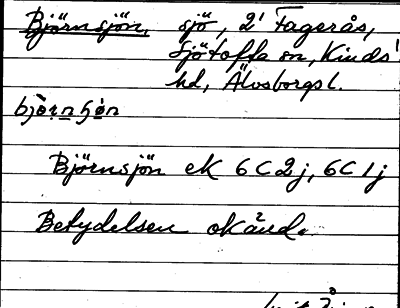 Björnsjön, sjö, 2' Fagerås,
Sjötofta sn, Kinds
hd, Älvsborgs l.
bjö̀rnhø̀n
Björnsjön ek 6C2j, 6C1j
Betydelsen okänd.